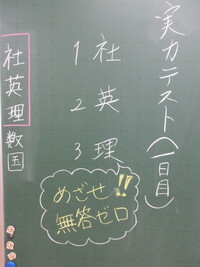 実力テスト(1日目)
1 社
2 英
3 理
めざせ!!
無答ゼロ
社英理数国